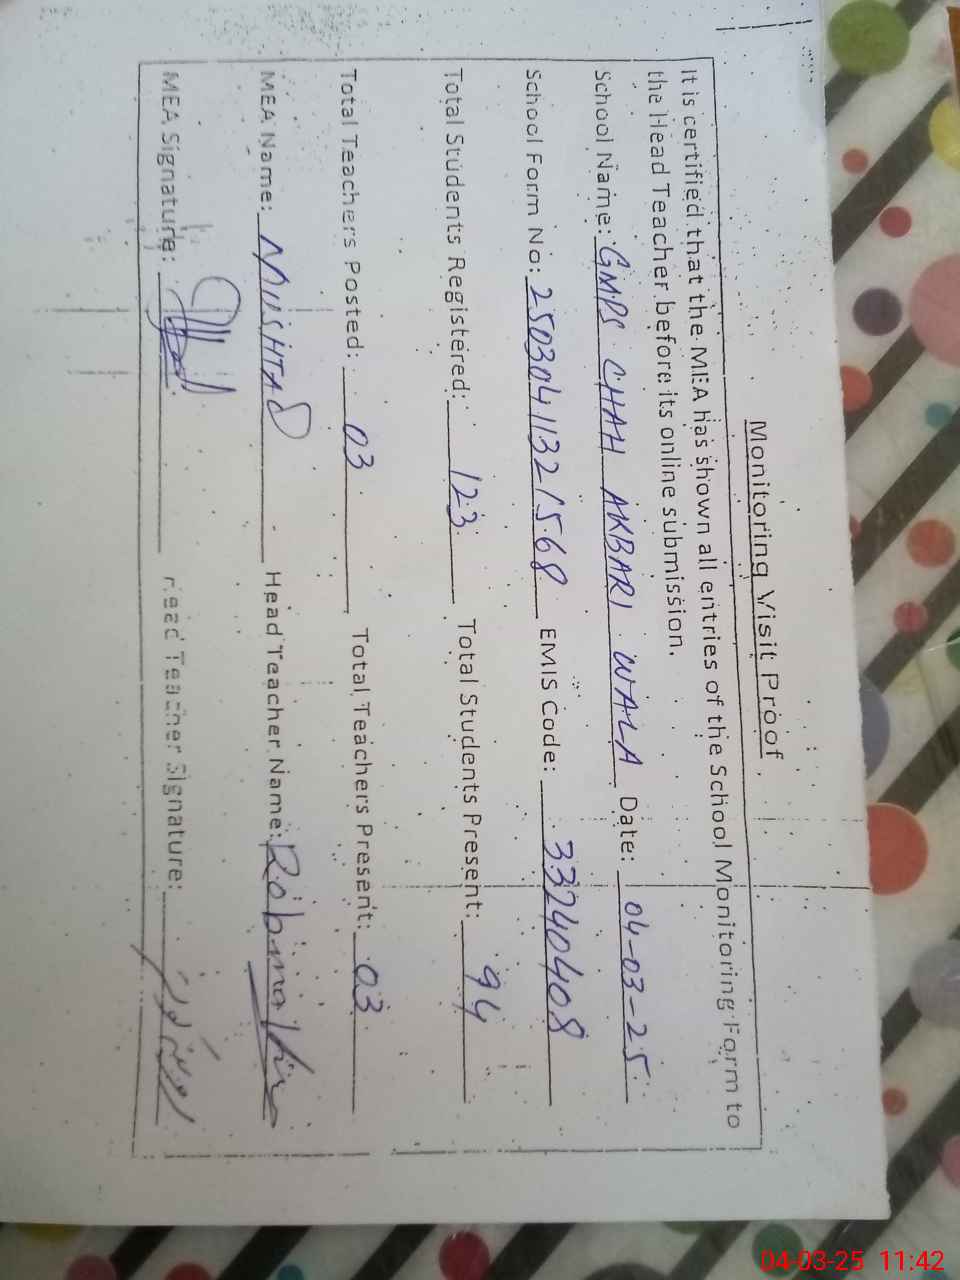 Monitoring Visit Proof
It is certified that the MEA has shown all entries of the School Monitoring Form to
the Head Teacher before its online submission.
School Name: GMPS CHAH AKBARI WALA Date: 04-03-25
School Form No: 25030411321568 EMIS Code: 33240408
Total Students Registered: 123 Total Students Present: 94
Total Teachers Posted: 03 Total Teachers Present: 03
MEA Name: MUSHTAQ Head Teacher Name: Robina
MEA Signature: Head Teacher Signature:
04-03-25 11:42